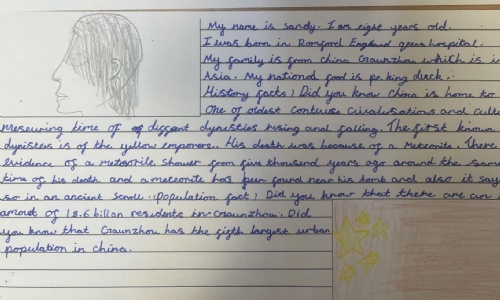 My name is sandy. I am eight years old.
I was born in Romford England queens hospital.
My family is from china Guanzhou which is in
Asia. My national food is peking duck.
History facts! Did you know China is home to
One of oldest Civilisations and
Meseuring time of diggent dynesties rising and falling. The first known
dynisteis is of the yellow emporere.. His death was because of a Meteorite. There
evidence of a meteorite shower from five thousand years ago around the same
time of his death and a meteorite has been found near his tomb and also it say
so in an ancient scroll. Population fact! Did you know that there are an
amount of 18.6 billon residents in Guanzhou. Did
you know that Guanzhou has the figth largest urban
population in china.